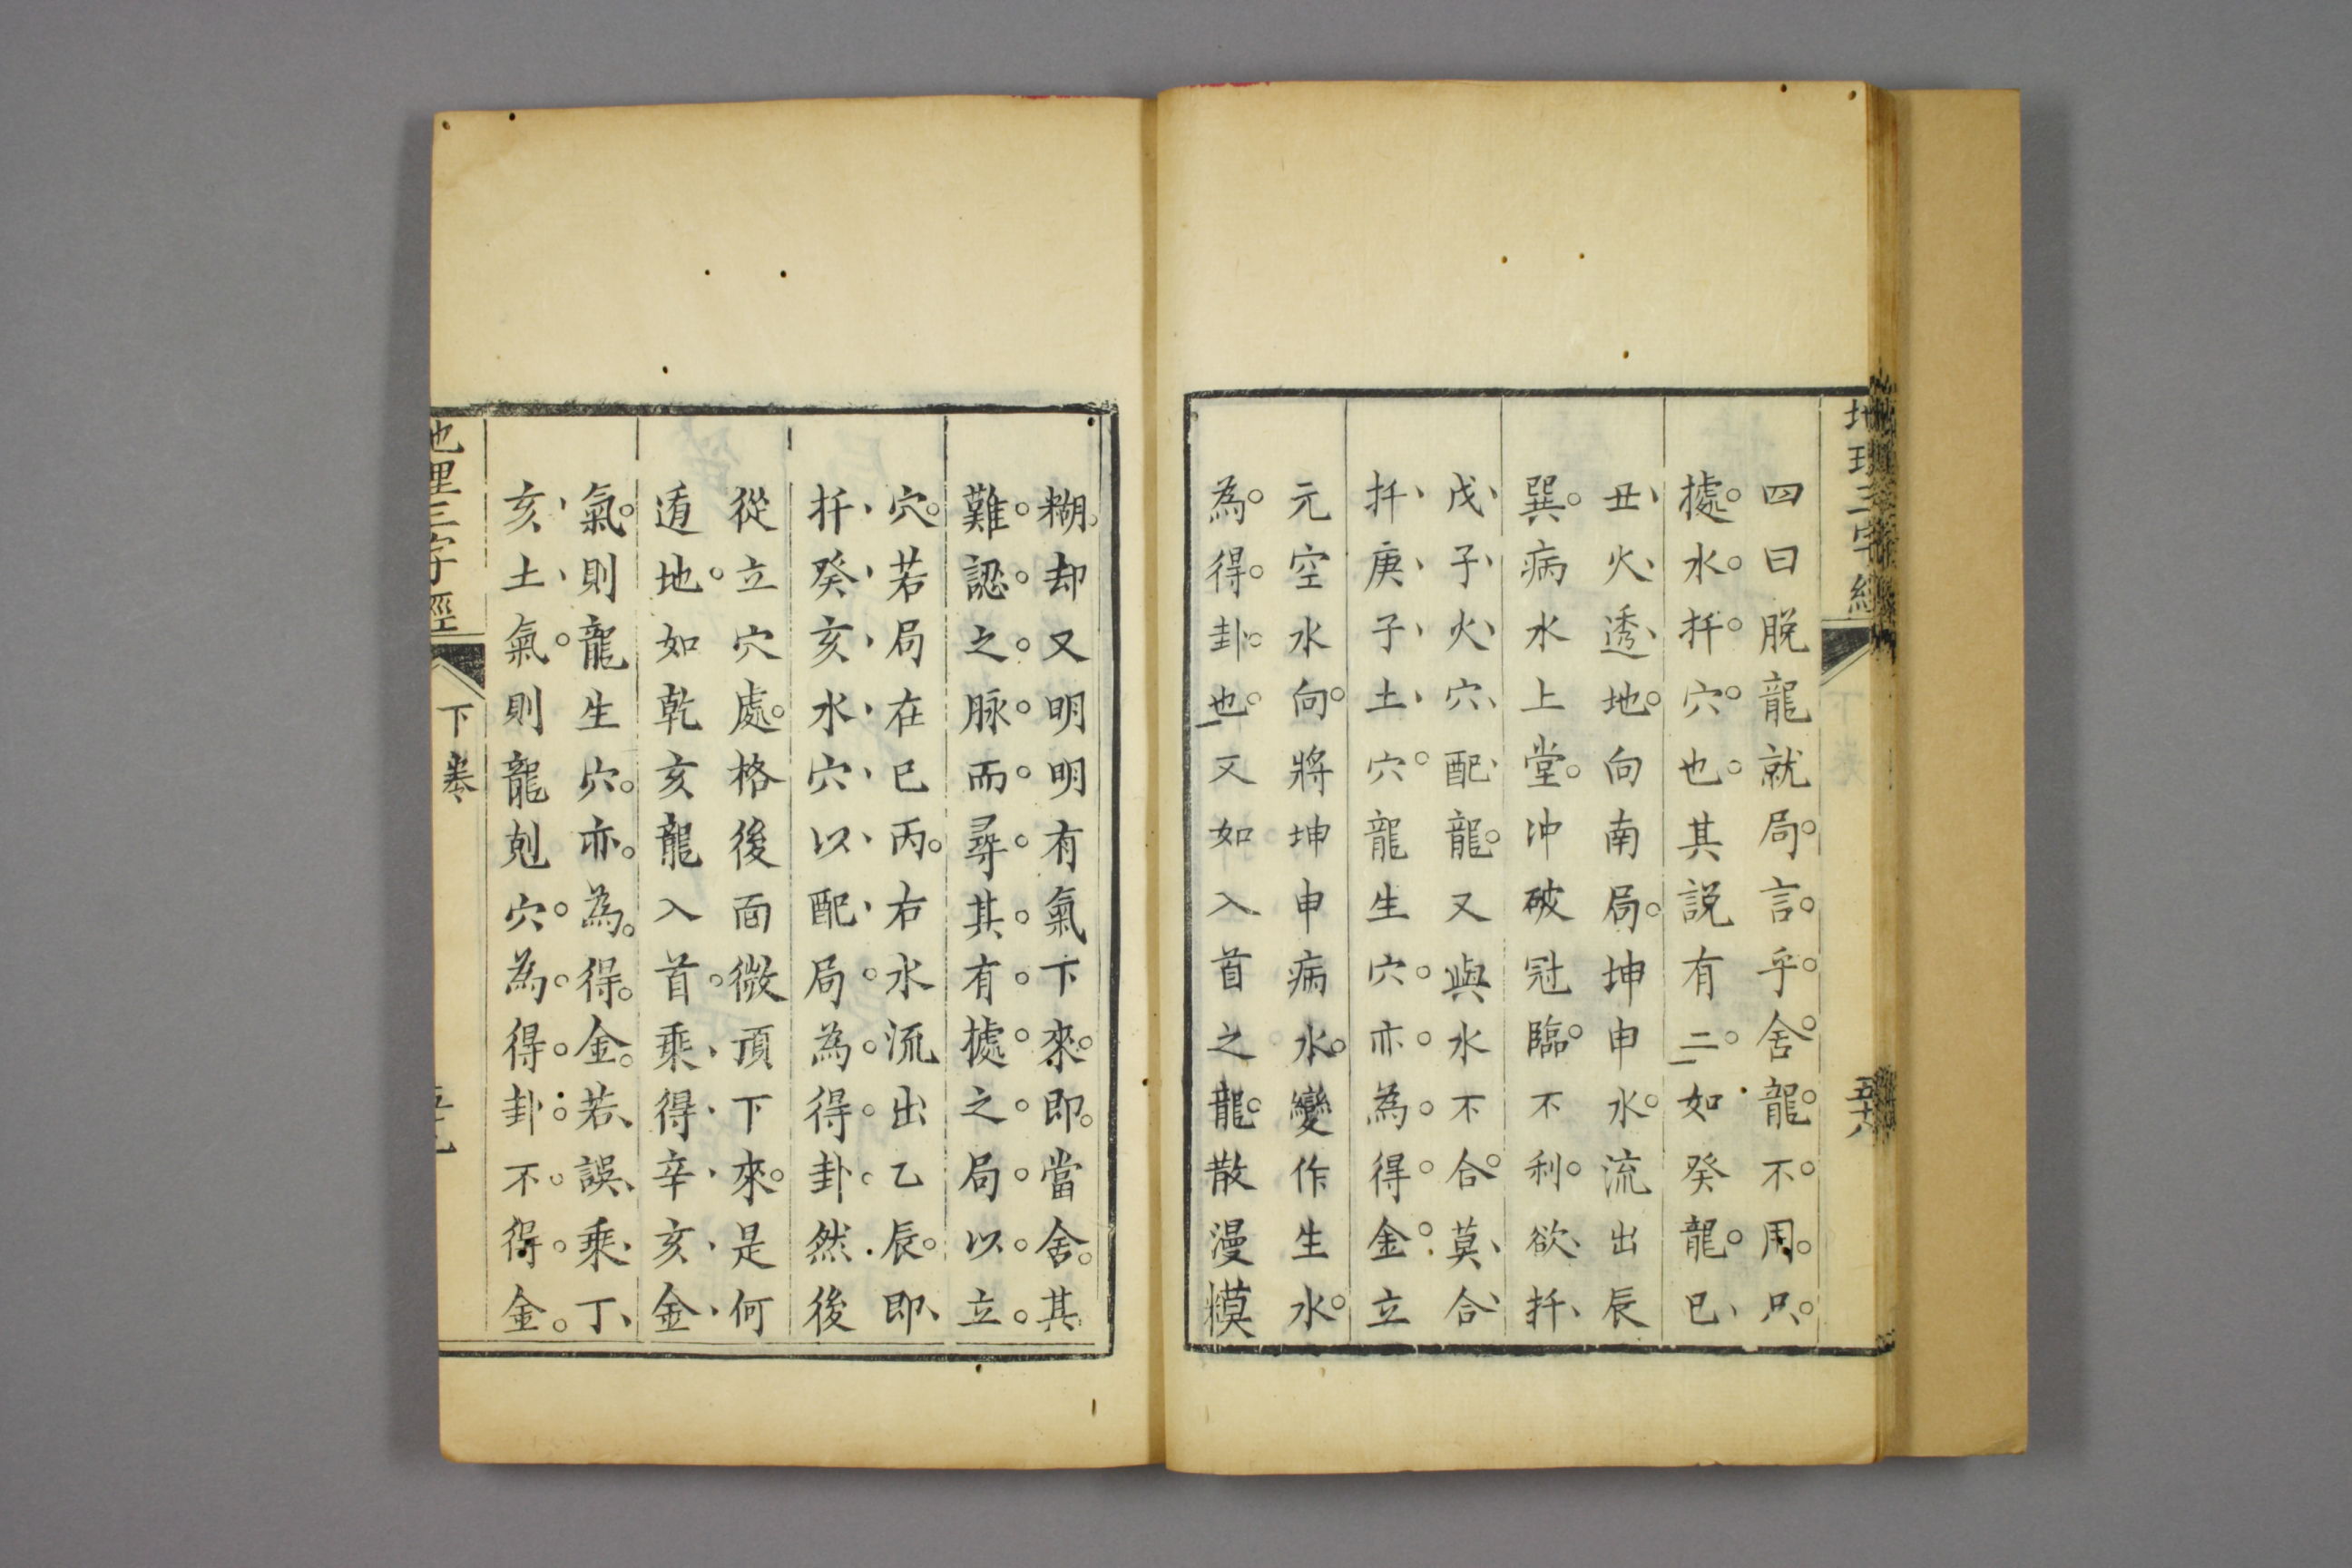 地理三字經
五十八
四曰脱龍就局言乎舍龍不用只
據水扦穴也其説有二如癸龍巳
丑火透地向南局坤申水流出辰
巽病水上堂冲破冠臨不利欲扦
戊子火穴配龍又與水不合莫合
扦庚子土穴龍生穴亦為得金立
元空水向將坤申病水變作生水
為得卦也又如入首之龍散漫糢
糊却又明明有氣下來即當舍其
難認之脉而尋其有據之局以立
穴若局在巳丙右水流出乙辰即
扦癸亥水穴以配局為得卦然後
從立穴處格後面微頂下來是何
透地如乾亥龍入首乘得辛亥金
氣則龍生穴亦為得金若誤乘丁
亥土氣則龍剋穴為得卦不得金
地理三字經
下卷